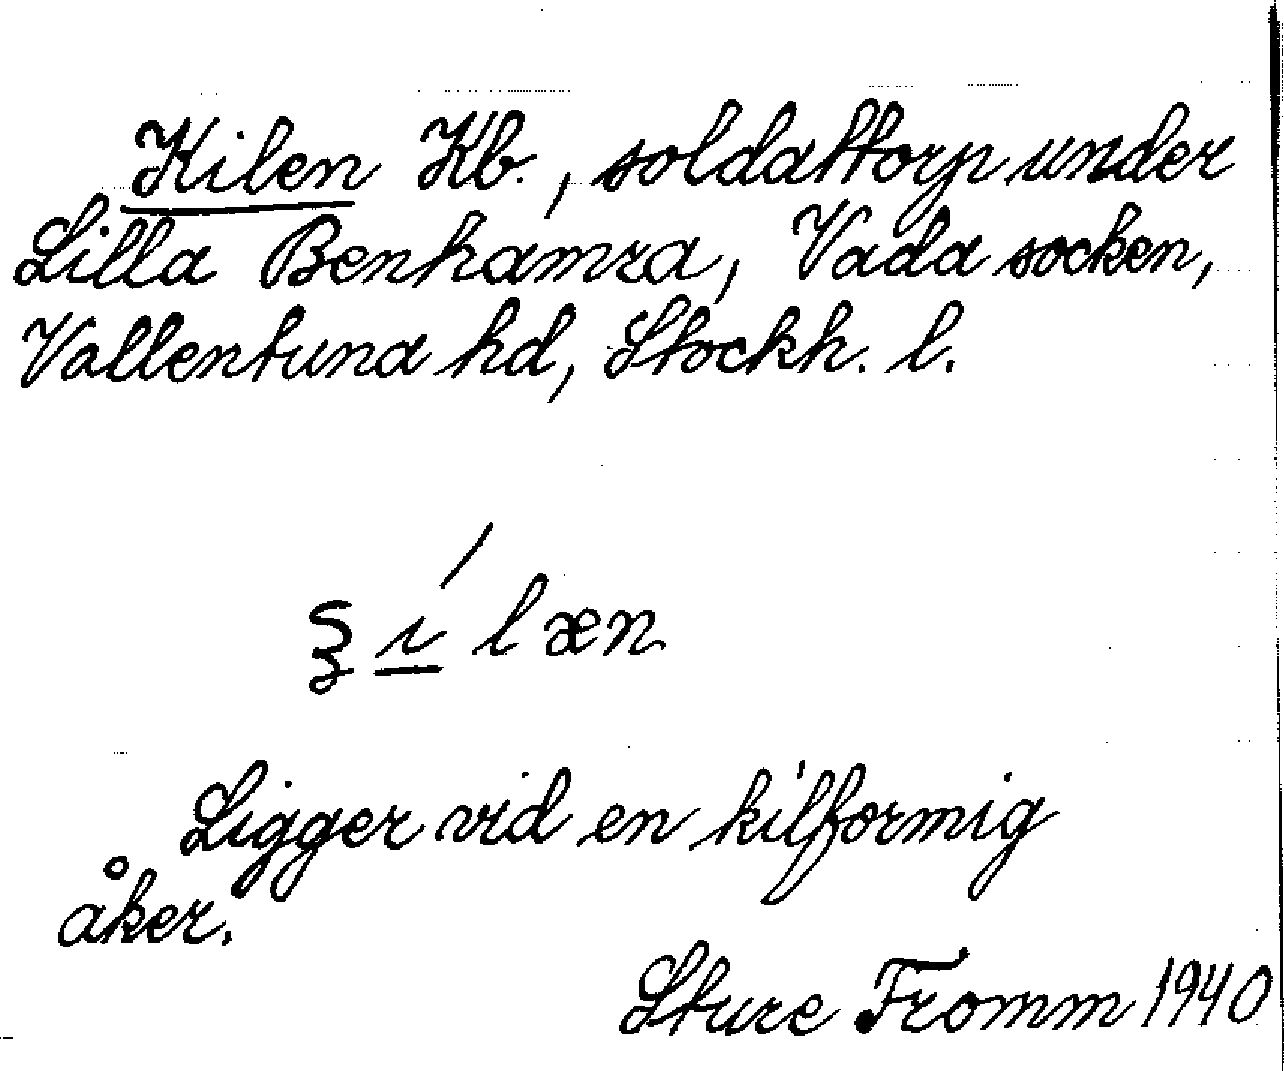 Kilen Kb., soldattorp under
Lilla Benhamra, Vada socken,
Vallentuna hd, Stockh. l.
ʒ í læn
Ligger vid en kilformig
åker.
Sture Fromm 1940